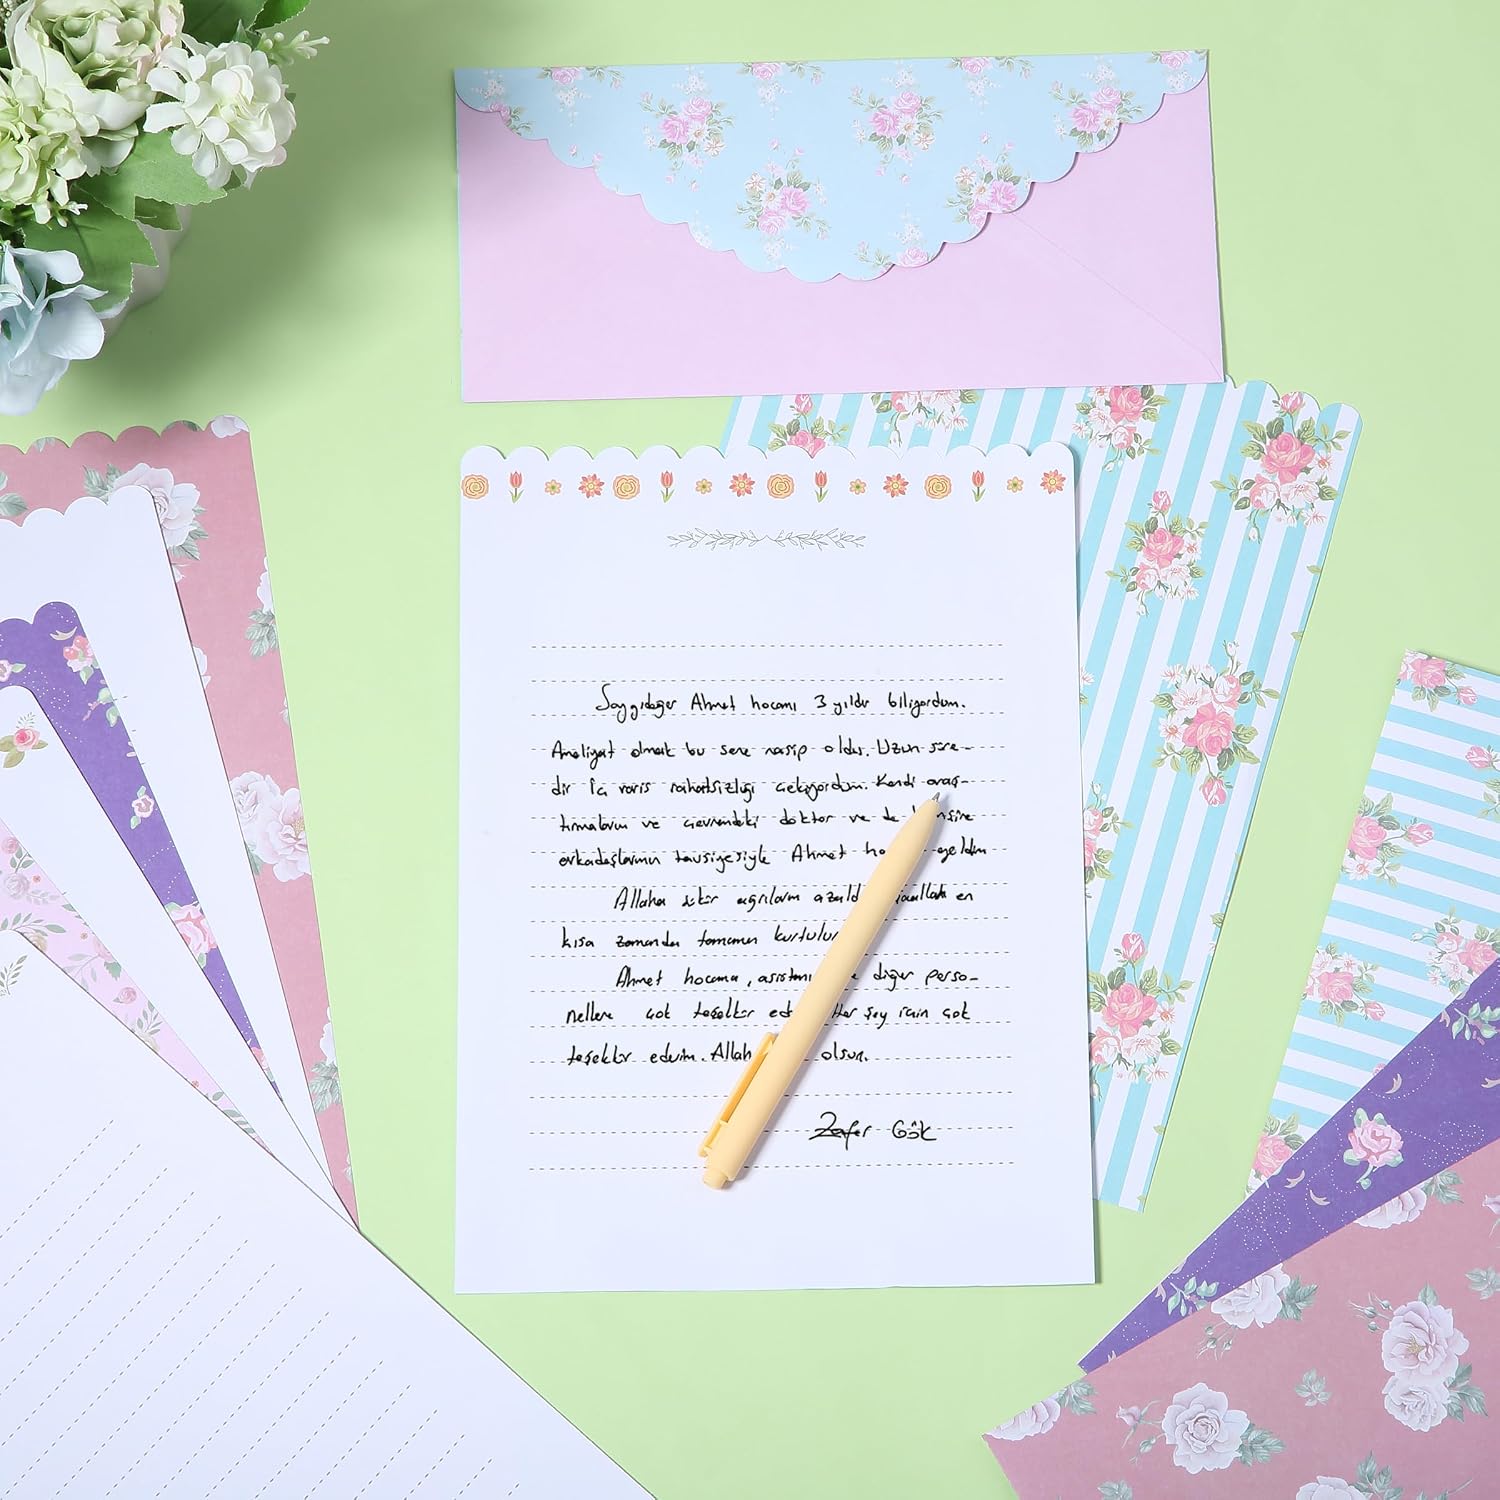 Saygıdeğer Ahmet hocamı 3 yıldır biliyordum.
Ameliyat olmak bu sene nasip oldu. Uzun süre-
dir iç varis rahatsızlığı çekiyordum. Kendi araş-
tırmalarım ve çevremdeki doktor ve de
arkadaşlarımın tavsiyesiyle Ahmet geldim
Allaha şükür ağrılarım en
kısa zamanda tamamen
Ahmet hocama, diğer perso-
nellere çok teşekkür Her şey için çok
teşekkür ederim. Allah olsun.
Zafer Gök